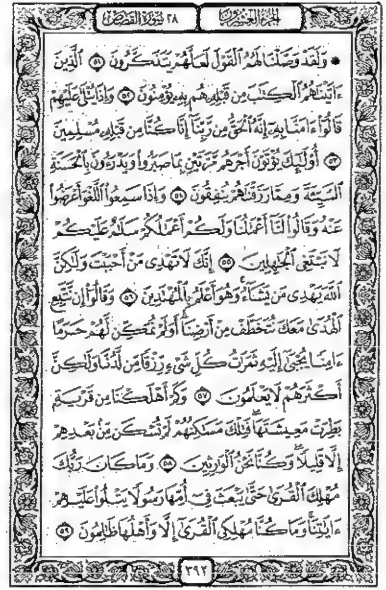 الجزء العشرون ٢٨ سورة القصص
۞ وَلَقَدْ وَصَّلْنَا لَهُمُ ٱلْقَوْلَ لَعَلَّهُمْ يَتَذَكَّرُونَ ٥١ ٱلَّذِينَ
ءَاتَيْنَٰهُمُ ٱلْكِتَٰبَ مِن قَبْلِهِۦ هُم بِهِۦ يُؤْمِنُونَ ٥٢ وَإِذَا يُتْلَىٰ عَلَيْهِمْ
قَالُوٓا۟ ءَامَنَّا بِهِۦٓ إِنَّهُ ٱلْحَقُّ مِن رَّبِّنَآ إِنَّا كُنَّا مِن قَبْلِهِۦ مُسْلِمِينَ
٥٣ أُو۟لَٰٓئِكَ يُؤْتَوْنَ أَجْرَهُم مَّرَّتَيْنِ بِمَا صَبَرُوا۟ وَيَدْرَءُونَ بِٱلْحَسَنَةِ
ٱلسَّيِّئَةَ وَمِمَّا رَزَقْنَٰهُمْ يُنفِقُونَ ٥٤ وَإِذَا سَمِعُوا۟ ٱللَّغْوَ أَعْرَضُوا۟
عَنْهُ وَقَالُوا۟ لَنَآ أَعْمَٰلُنَا وَلَكُمْ أَعْمَٰلُكُمْ سَلَٰمٌ عَلَيْكُمْ
لَا نَبْتَغِى ٱلْجَٰهِلِينَ ٥٥ إِنَّكَ لَا تَهْدِى مَنْ أَحْبَبْتَ وَلَٰكِنَّ
ٱللَّهَ يَهْدِى مَن يَشَآءُ وَهُوَ أَعْلَمُ بِٱلْمُهْتَدِينَ ٥٦ وَقَالُوٓا۟ إِن نَّتَّبِعِ
ٱلْهُدَىٰ مَعَكَ نُتَخَطَّفْ مِنْ أَرْضِنَآ أَوَلَمْ نُمَكِّن لَّهُمْ حَرَمًا
ءَامِنًا يُجْبَىٰٓ إِلَيْهِ ثَمَرَٰتُ كُلِّ شَىْءٍ رِّزْقًا مِّن لَّدُنَّا وَلَٰكِنَّ
أَكْثَرَهُمْ لَا يَعْلَمُونَ ٥٧ وَكَمْ أَهْلَكْنَا مِن قَرْيَةٍۭ
بَطِرَتْ مَعِيشَتَهَا فَتِلْكَ مَسَٰكِنُهُمْ لَمْ تُسْكَن مِّنۢ بَعْدِهِمْ
إِلَّا قَلِيلًا وَكُنَّا نَحْنُ ٱلْوَٰرِثِينَ ٥٨ وَمَا كَانَ رَبُّكَ
مُهْلِكَ ٱلْقُرَىٰ حَتَّىٰ يَبْعَثَ فِىٓ أُمِّهَا رَسُولًا يَتْلُوا۟ عَلَيْهِمْ
ءَايَٰتِنَا وَمَا كُنَّا مُهْلِكِى ٱلْقُرَىٰٓ إِلَّا وَأَهْلُهَا ظَٰلِمُونَ ٥٩
٣٩٢